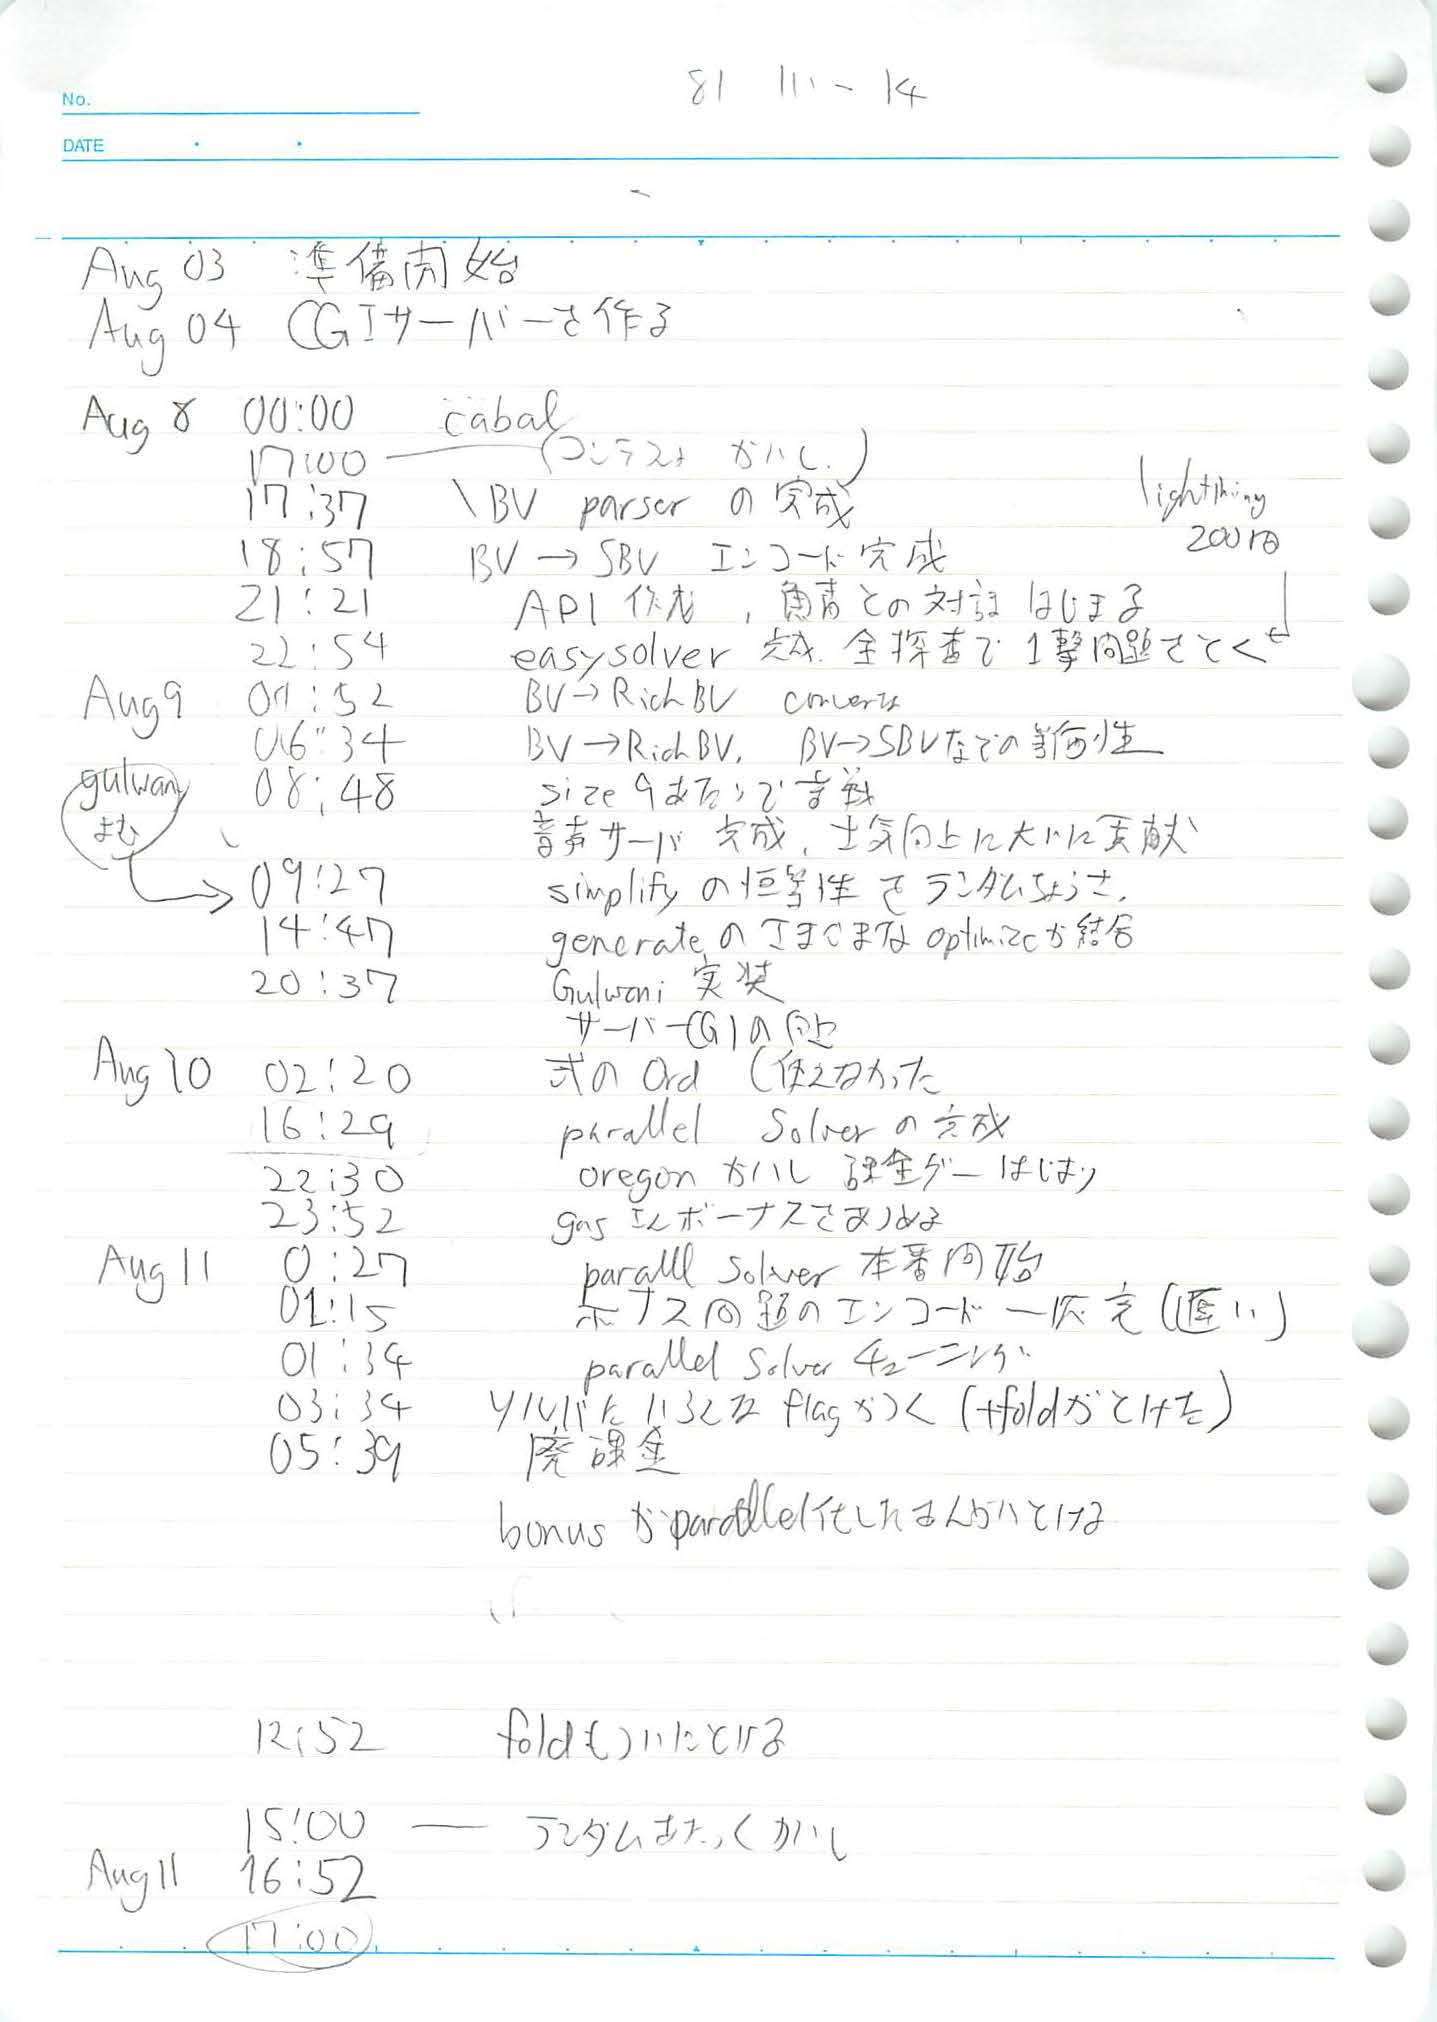 81 111 - 14
No.
DATE
Aug 03 準備開始
Aug 04 CGIサーバーを作る
Aug 8 00:00 cabal
17:00 (コンテスト かいし.)
17:37 \BV parser の完成
lightning
200問
18:57 BV → SBV エンコード完成
21:21 API 作成, との対話 はじまる
22:54 easysolver 完成. 全探査で 1撃問題をとく
Aug 9 01:52 BV→RichBV
06:34 BV→RichBV. BV→SBVなどの等価性
gulwani
よむ
08:48 size 9あたりで苦戦
音声サーバ 完成, 士気向上に大いに貢献
09:27 simplify の恒等性 をランダムちょうさ.
14:47 generate のさまざまな optimizeが結合
20:37 Gulwani 実装
サーバーCGIの向上
Aug 10 02:20 式の Ord (使えなかった
16:29 parallel Solver の完成
22:30 oregon かいし 課金ゲー はじまり
23:52 gas ボーナスをあつめる
Aug 11 0:27 parallel solver 本番開始
01:15 ボナス問題のエンコード 一応完 (遅い)
01:34 parallel Solver チューニング
03:34 ソルバに いろんな flagがつく (tfoldがとけた)
05:39 廃課金
bonus が parallel化したまんがいとける
12:52 foldもついにとける
15:00 ― ランダムあたっくかいし
Aug 11 16:52
17:00